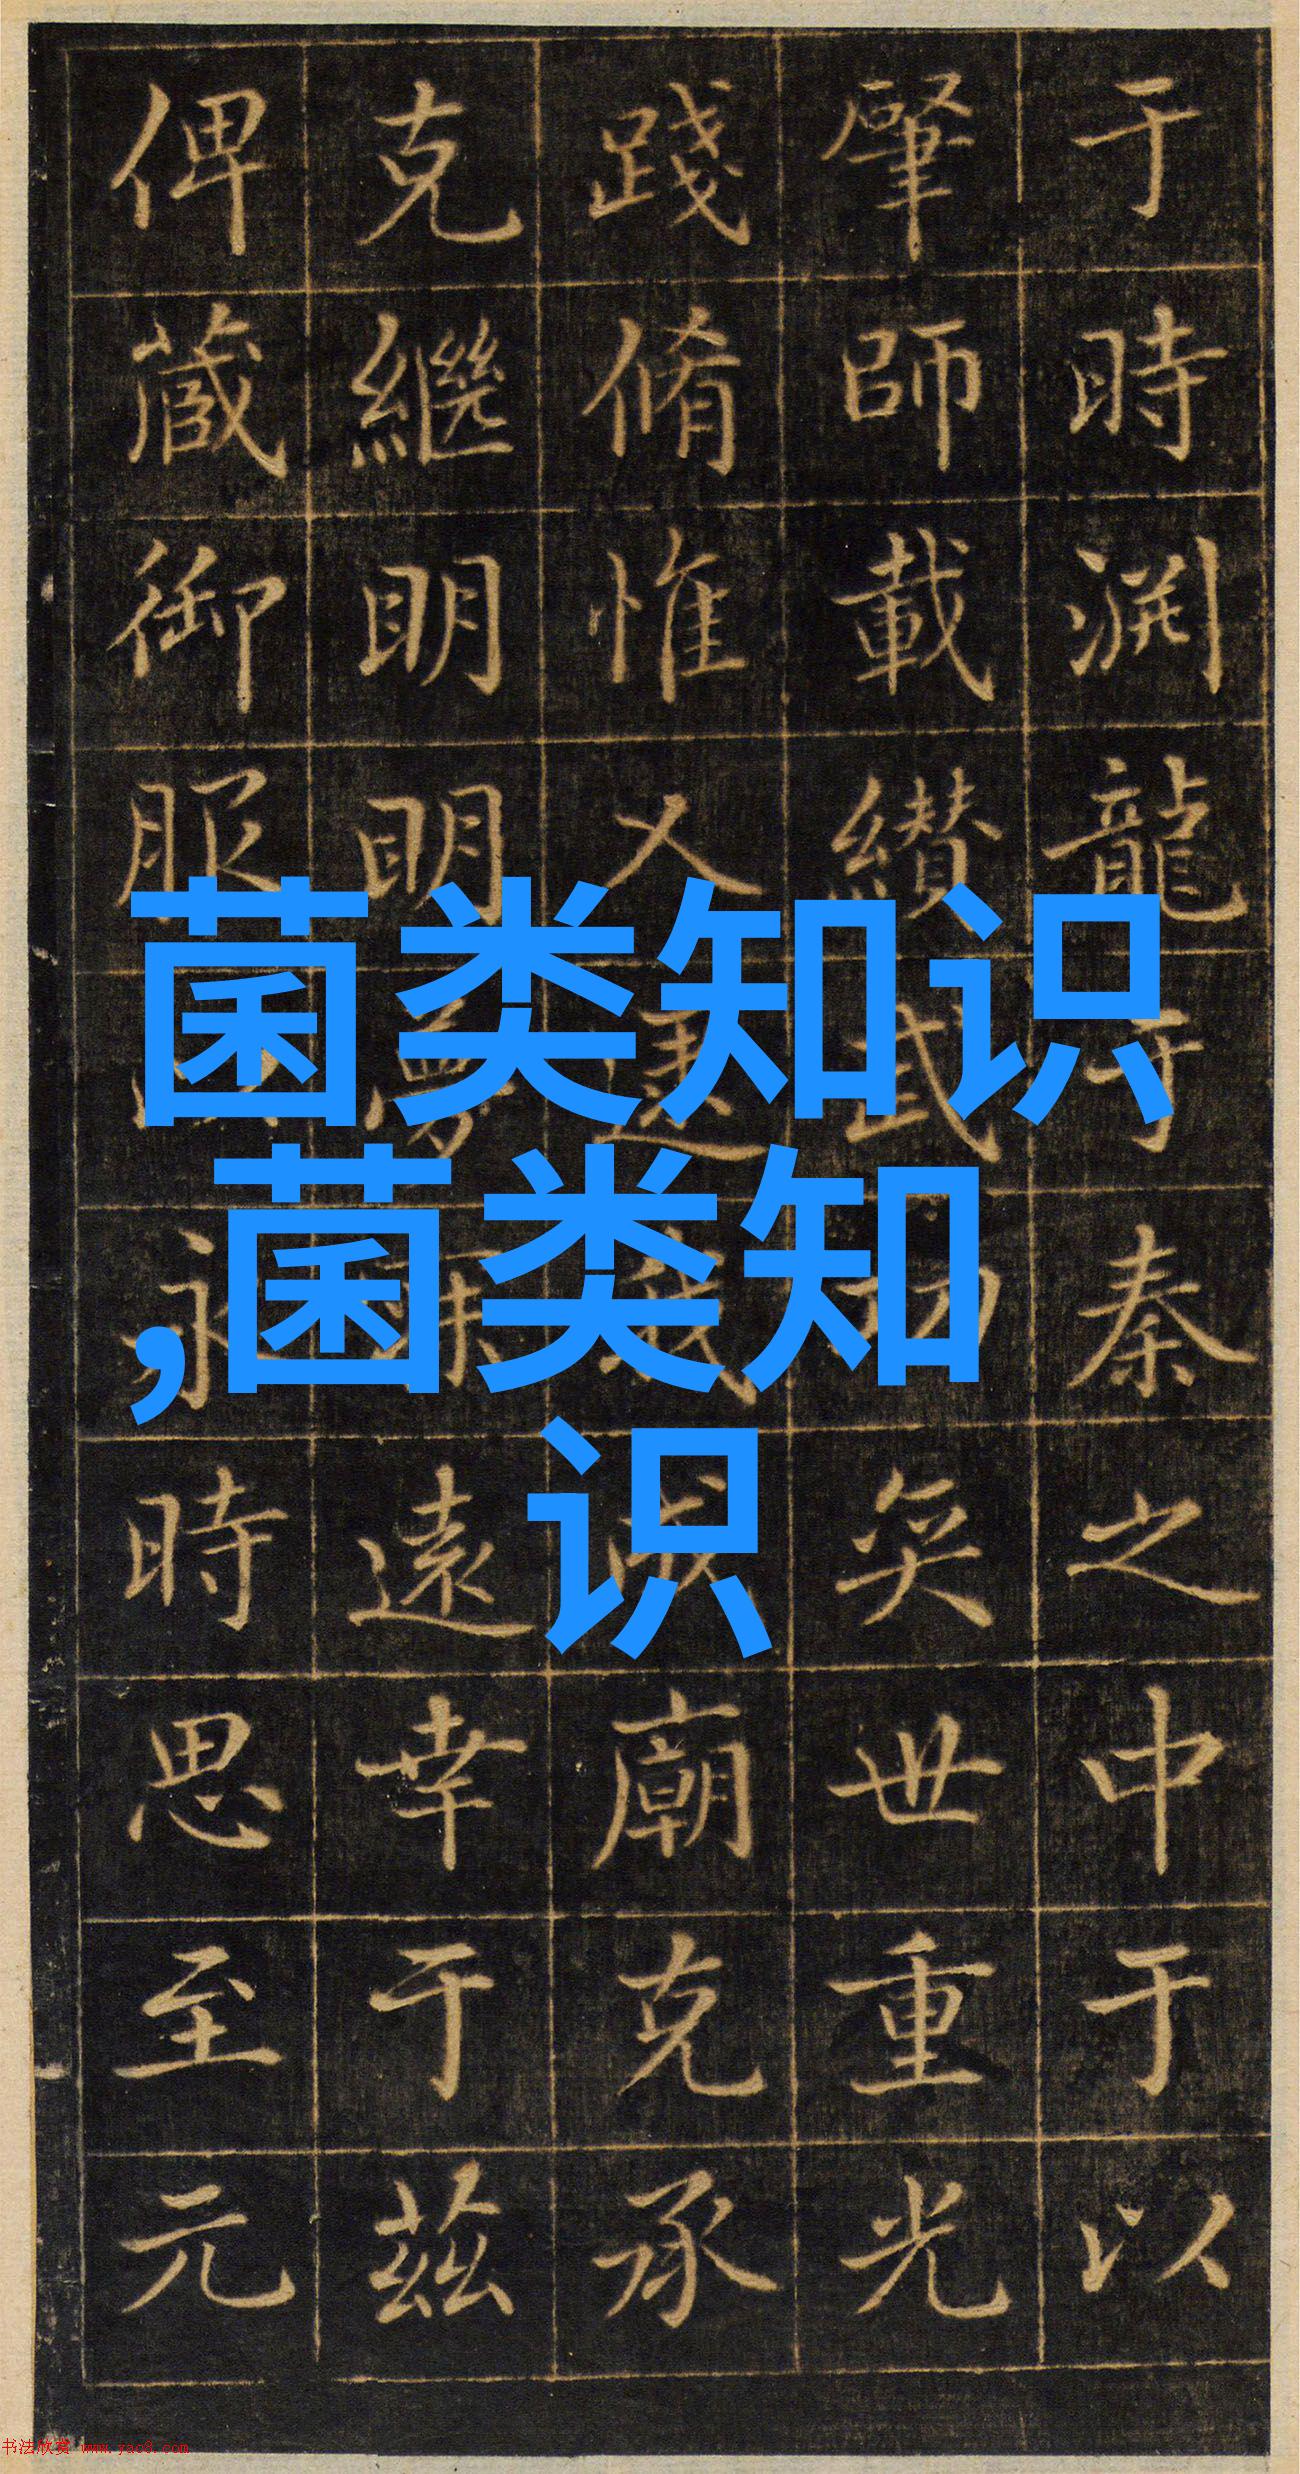 菌类知识
,菌类知
识
于時渊龍于秦之中于以
肇師載纘武功奕世重光
踐脩惟乂逮我成廟克承
克繼明明遠幸于茲
俾蕆御服永時思至元
书法欣赏 www.yac8.com